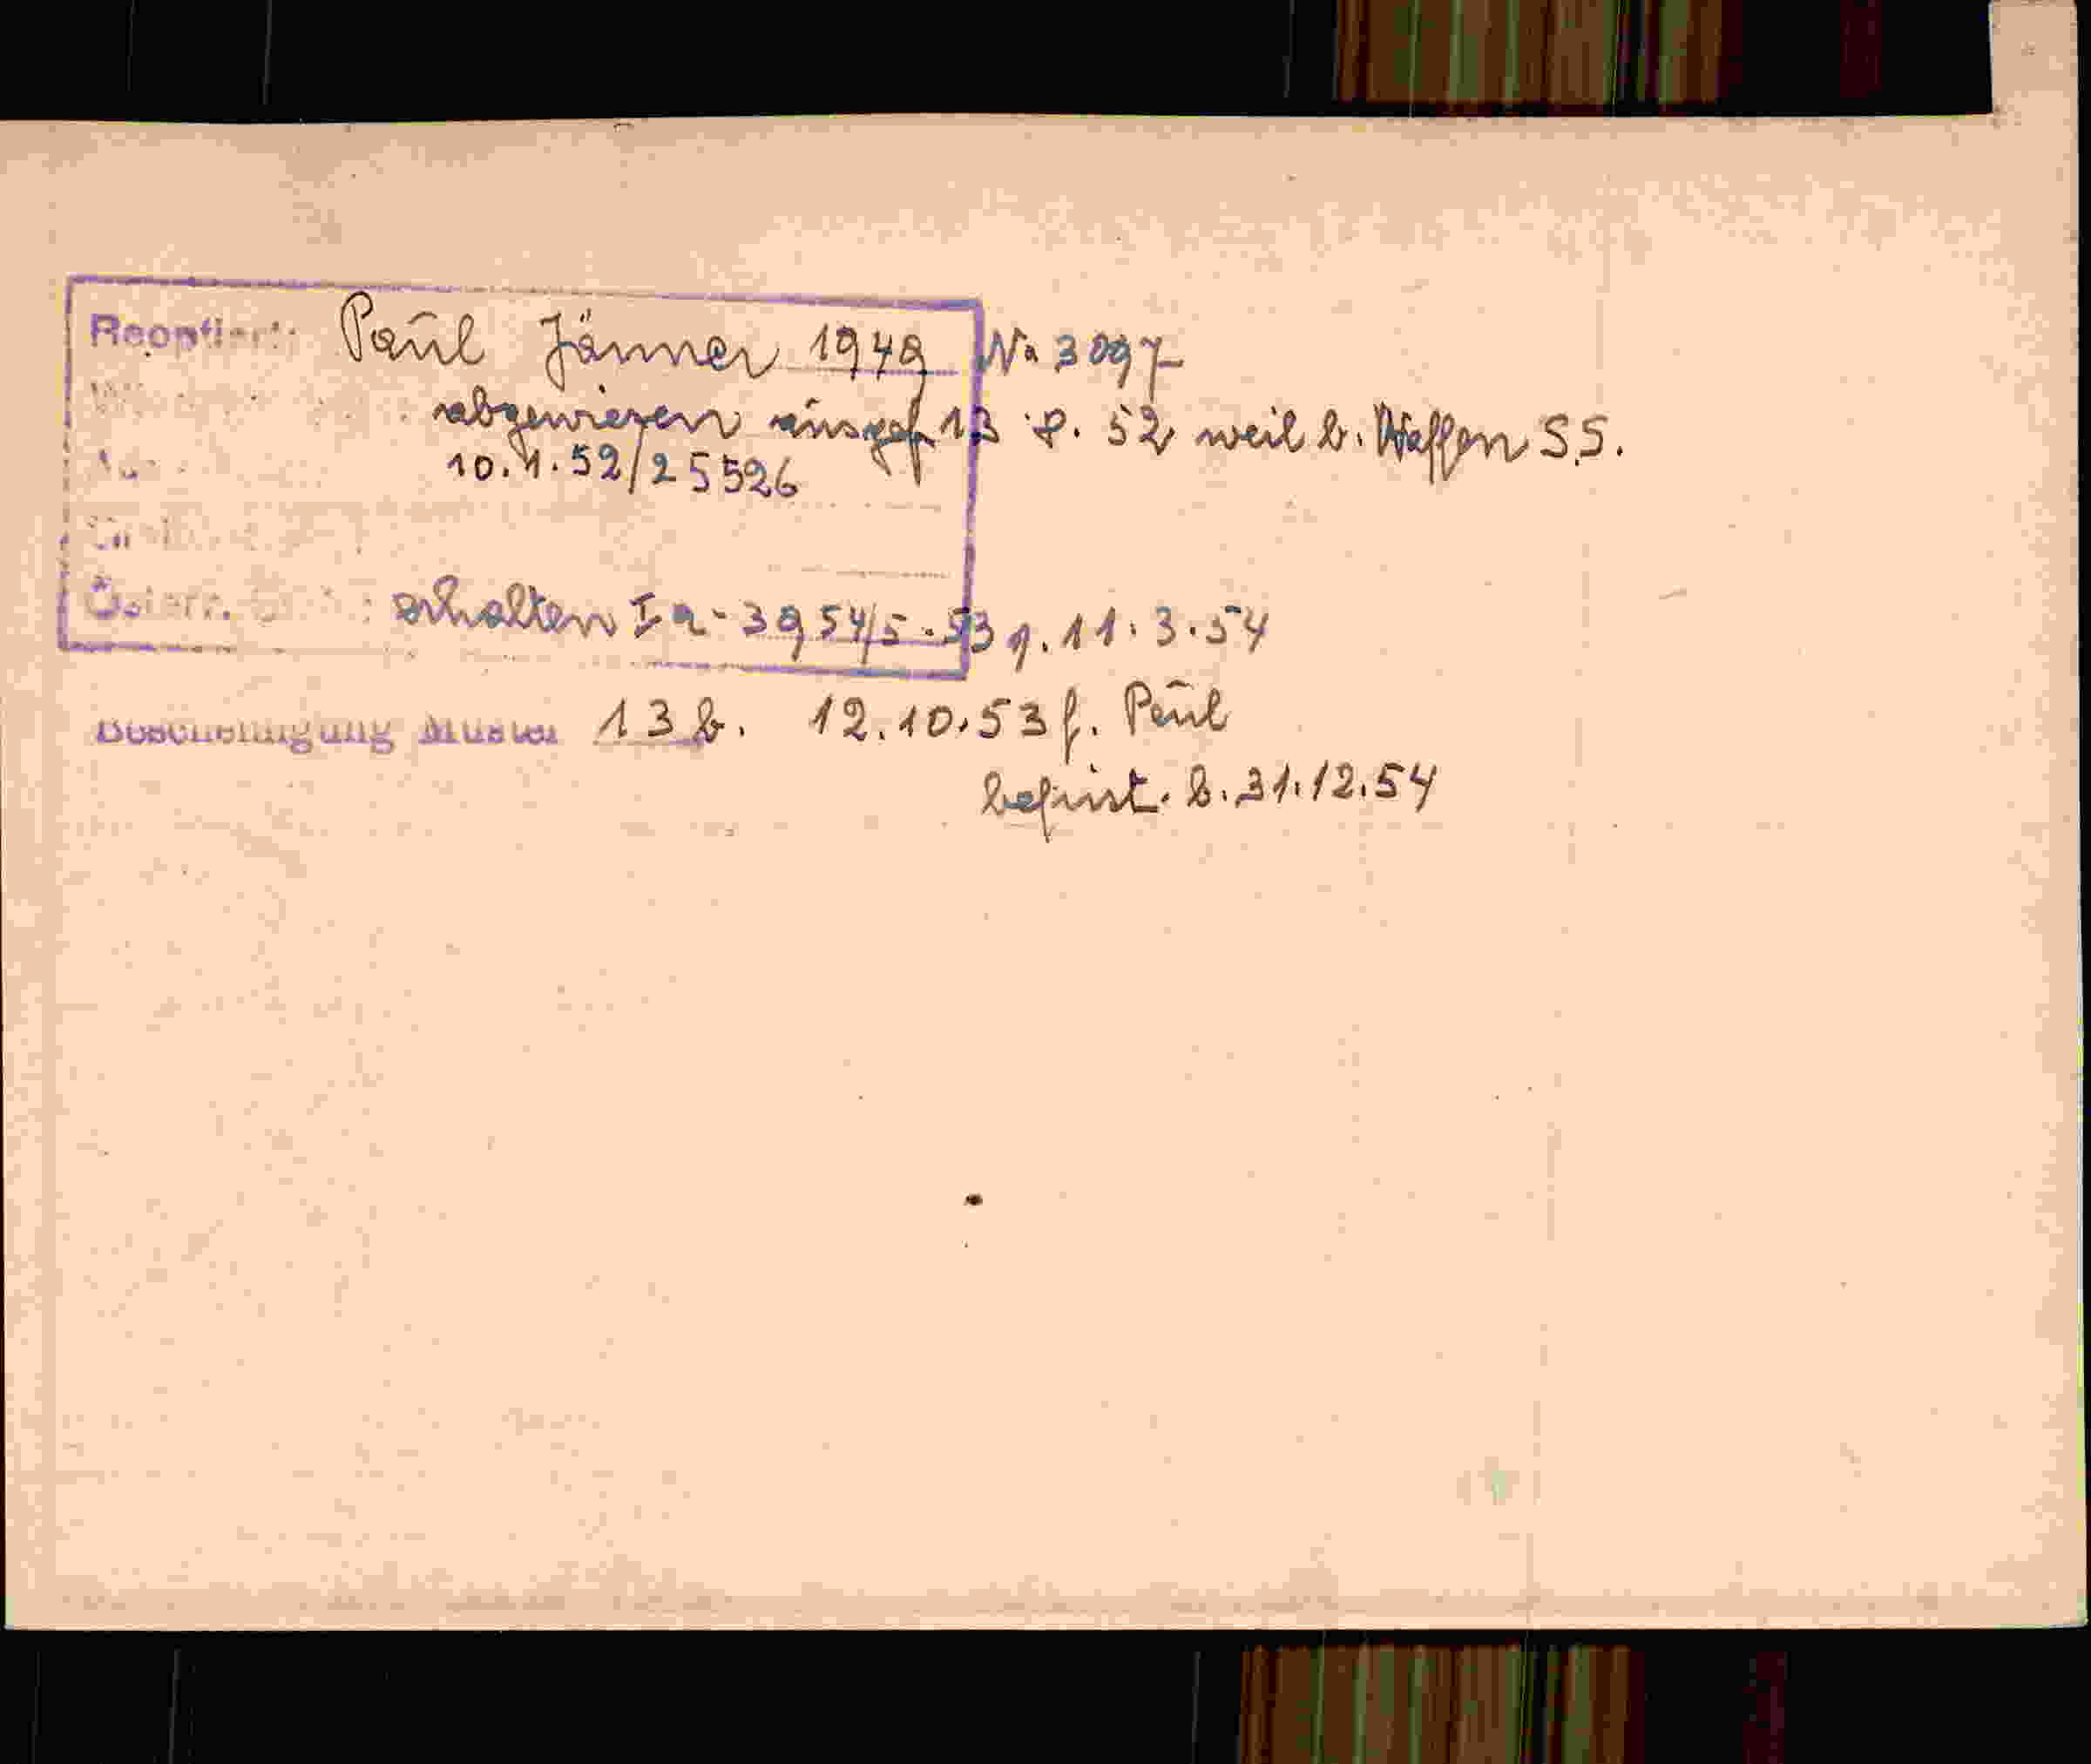 Reoptiert: Paul Jänner 1949 No 3097
abgewiesen ausgef. 13.8.52 weil b. Waffen S.S.
10.1.52/25526
Österr. erhalten Ia-3954/5-53 v. 11.3.54
Bescheinigung Muster 13 b. 12.10.53 f. Paul
befrist. b. 31.12.54